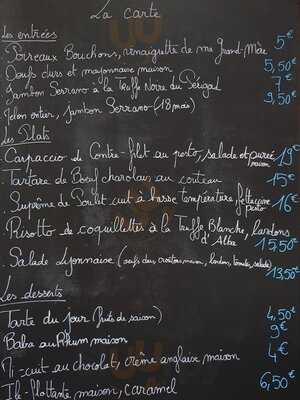 La carte
Les entrées
Poireaux Bouchons, vinaigrette de ma Grand-Mère 5€
Oeufs durs et mayonnaise maison 5,50€
Jambon Serrano à la Truffe Noire du Périgord 7€
Melon entier, jambon Serrano (18 mois) 9,50€
Les Plats
Carpaccio de Contre-filet au pesto, salade et purée maison 19€
Tartare de Boeuf charolais au couteau 15€
Suprême de Poulet cuit à basse température, fettuccine pesto 16€
Risotto de coquillettes à la Truffe Blanche, lardons
d'Alba 15,50€
Salade Lyonnaise (oeufs durs, croutons maison, lardons, tomates, salade) 13,50€
Les desserts
Tarte du jour (fruits de saison) 4,50€
Baba au Rhum maison 9€
Mi-cuit au chocolat, crème anglaise maison 4€
Ile flottante maison, caramel 6,50€